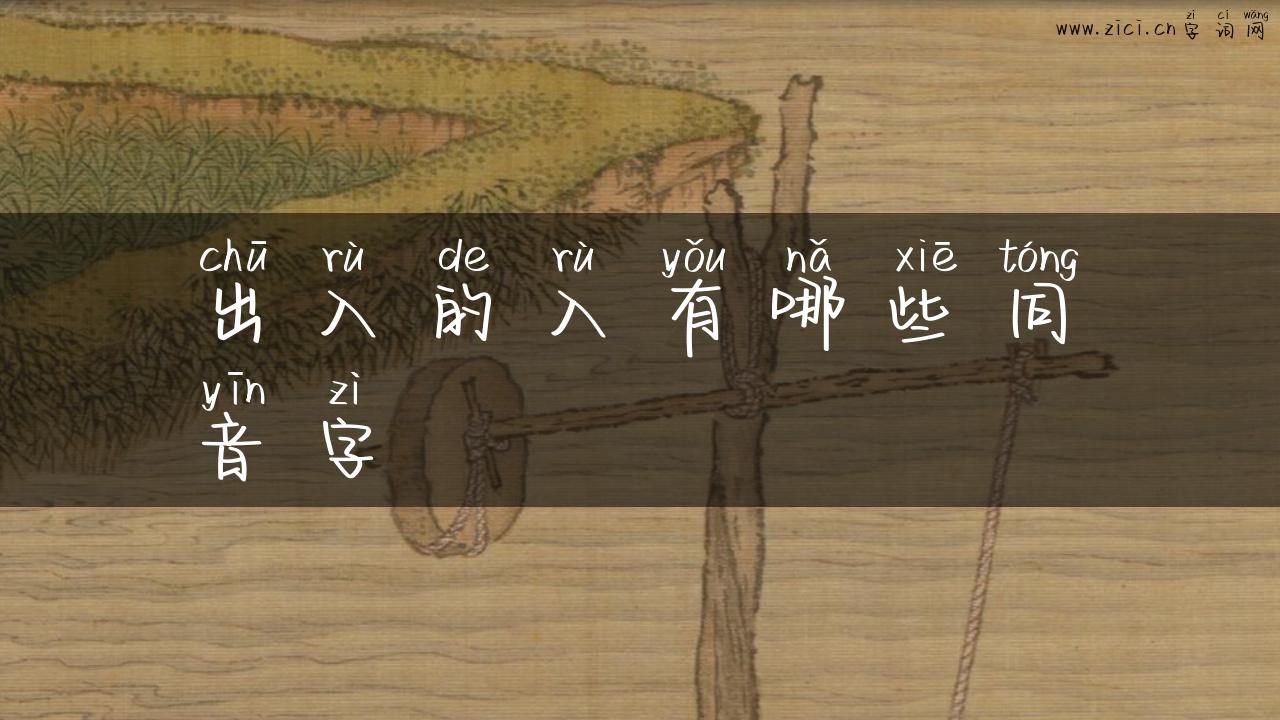 zì cí wǎng
www.zici.cn 字 词 网
chū rù de rù yǒu nǎ xiē tóng
出 入 的 入 有 哪 些 同
yīn zì
音 字